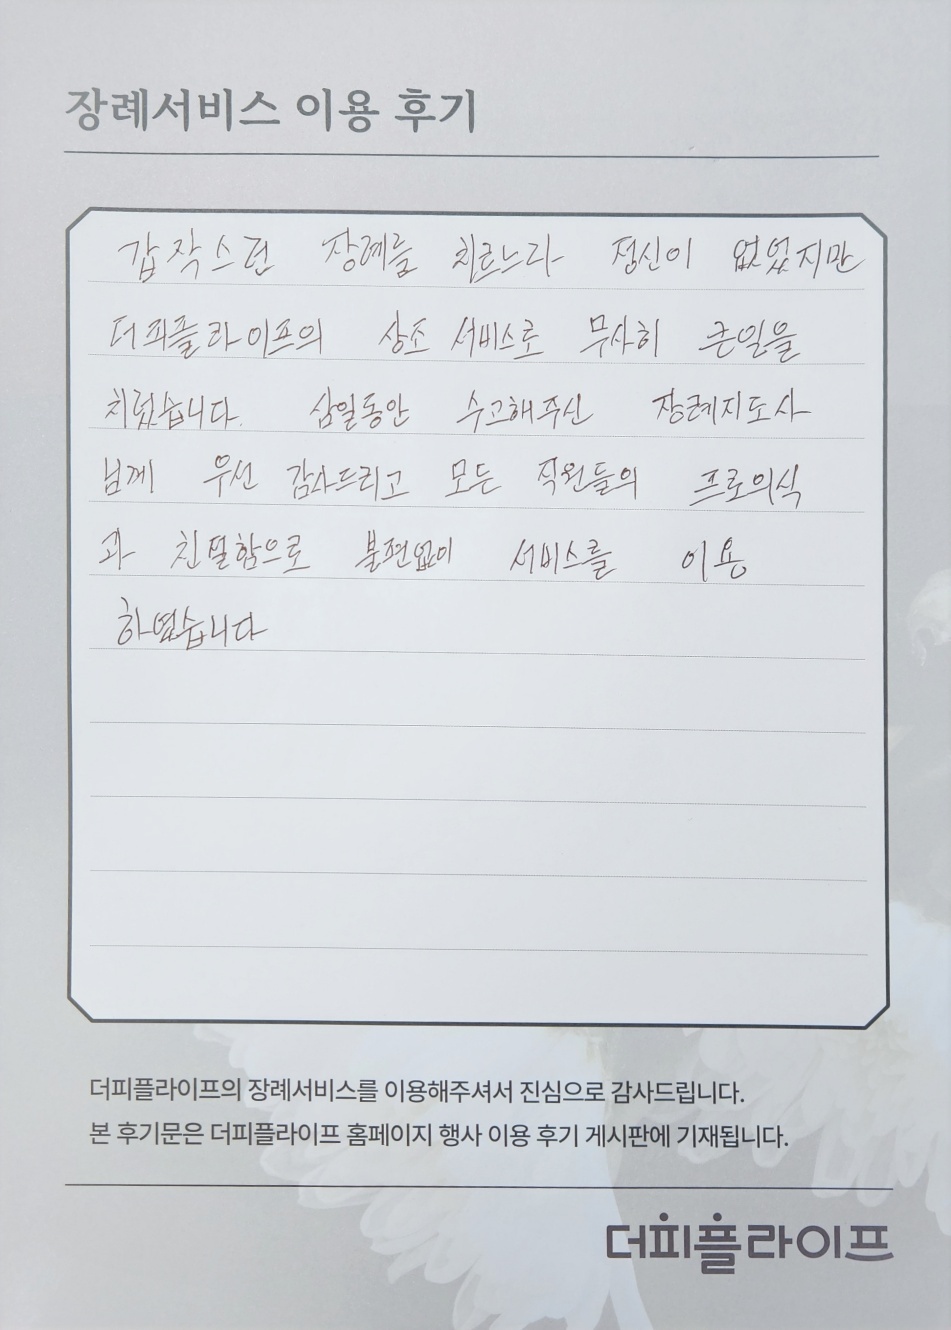 장례서비스 이용 후기
갑작스런 장례를 치르느라 정신이 없었지만
더피플라이프의 상조 서비스로 무사히 큰일을
치렀습니다. 삼일동안 수고해주신 장례지도사
님께 우선 감사드리고 모든 직원들의 프로의식
과 친절함으로 불편없이 서비스를 이용
하였습니다
더피플라이프의 장례서비스를 이용해주셔서 진심으로 감사드립니다.
본 후기문은 더피플라이프 홈페이지 행사 이용 후기 게시판에 기재됩니다.
더피플라이프